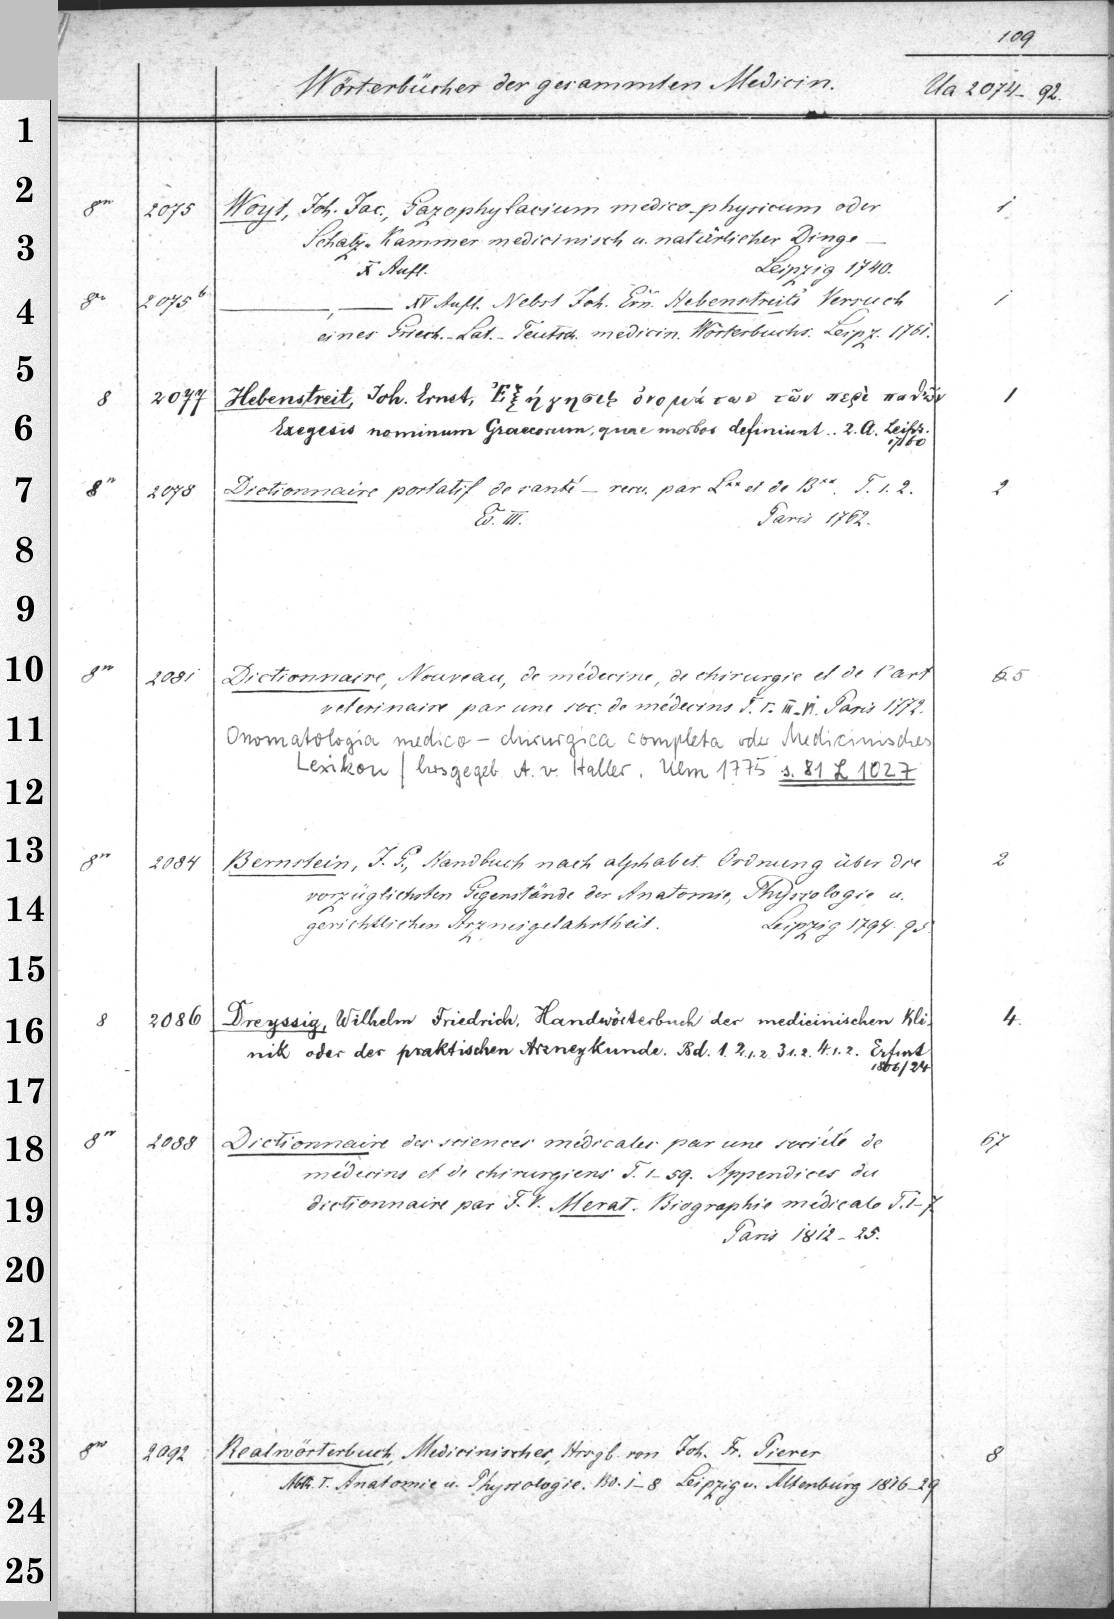 109
Wörterbücher der gesammten Medicin. Ua 2074-92.
1
2
8vo 2075 Woyt, Joh. Jac., Gazophylacium medico-physicum oder 1
3
Schatz-Kammer medicinisch u. natürlicher Dinge —
X Aufl. Leipzig 1740.
4
8vo 2075b ———, —— XV Aufl. Nebst Joh. Ern. Hebenstreits Versuch 1
eines Griech.-Lat.-Teutsch. medicin. Wörterbuchs. Leipz. 1761.
5
8 2077 Hebenstreit, Joh. Ernst, Ἐξήγησις ὀνομάτων τῶν περὶ παθῶν 1
6
Exegesis nominum Graecorum, quae morbos definiunt.. 2. A. Leipz.
1760
7
8vo 2078 Dictionnaire portatif de santé — rev. par L** et de B**. T. 1. 2. 2
Ed. III. Paris 1762.
8
9
10
8vo 2081 Dictionnaire, Nouveau, de médecine, de chirurgie et de l'art 5
veterinaire par une soc. de médecins T. I. III-VI. Paris 1772.
11
Onomatologia medico-chirurgica completa oder Medicinisches
Lexikon / hrsgegeb. A. v. Haller. Ulm 1775 s. 81 L 1027
12
13
8vo 2084 Bernstein, J. G., Handbuch nach alphabet. Ordnung über die 2
14
vorzüglichsten Gegenstände der Anatomie, Physiologie u.
gerichtlichen Arzneigelahrtheit. Leipzig 1794. 95.
15
16
8 2086 Dreyssig, Wilhelm Friedrich, Handwörterbuch der medicinischen Kli- 4
nik oder der praktischen Arzneykunde. Bd. 1. 2,1.2. 3 1.2. 4. 1. 2. Erfurt
1806/24
17
18
8vo 2088 Dictionnaire des sciences médicales par une société de 67
médecins et de chirurgiens T. 1-59. Appendices du
19
dictionnaire par F. V. Merat. Biographie médicale T. 1-7.
Paris 1812-25.
20
21
22
23
8vo 2092 Realwörterbuch, Medicinisches, Hrsgb. von Joh. Fr. Pierer 8
Abth. I. Anatomie u. Physiologie. Bd. 1-8 Leipzig u. Altenburg 1816-29
24
25